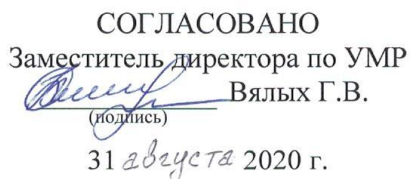 СОГЛАСОВАНО
Заместитель директора по УМР
Вялых Г.В.
(подпись)
31 августа 2020 г.